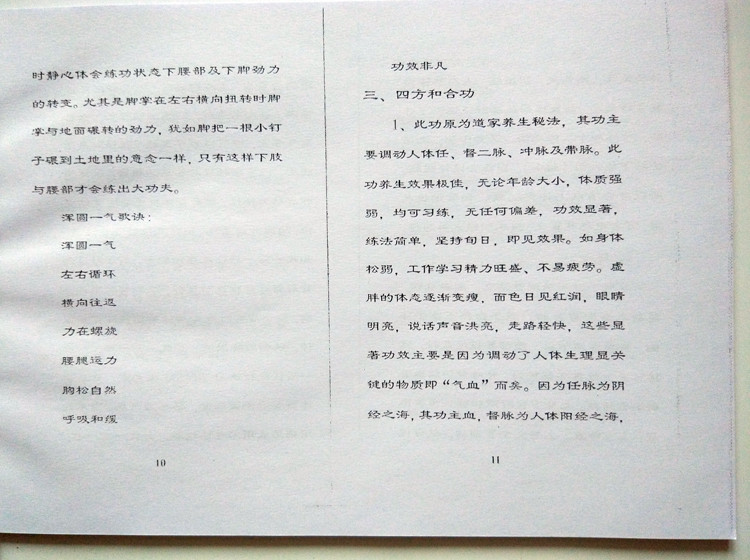 时静心体会练功状态下腰部及下脚劲力
的转变。尤其是脚掌在左右横向扭转时脚
掌与地面碾转的劲力，犹如脚把一根小钉
子碾到土地里的意念一样，只有这样下肢
与腰部才会练出大功夫。
浑圆一气歌诀：
浑圆一气
左右循环
横向往返
力在螺旋
腰腿运力
胸松自然
呼吸和缓
10
功效非凡
三、四方和合功
1、此功原为道家养生秘法，其功主
要调动人体任、督二脉、冲脉及带脉。此
功养生效果极佳，无论年龄大小，体质强
弱，均可习练，无任何偏差，功效显著，
练法简单，坚持旬日，即见效果。如身体
松弱，工作学习精力旺盛、不易疲劳。虚
胖的体态逐渐变瘦，面色日见红润，眼睛
明亮，说话声音洪亮，走路轻快，这些显
著功效主要是因为调动了人体生理显关
键的物质即“气血”而矣。因为任脉为阴
经之海，其功主血，督脉为人体阳经之海，
11